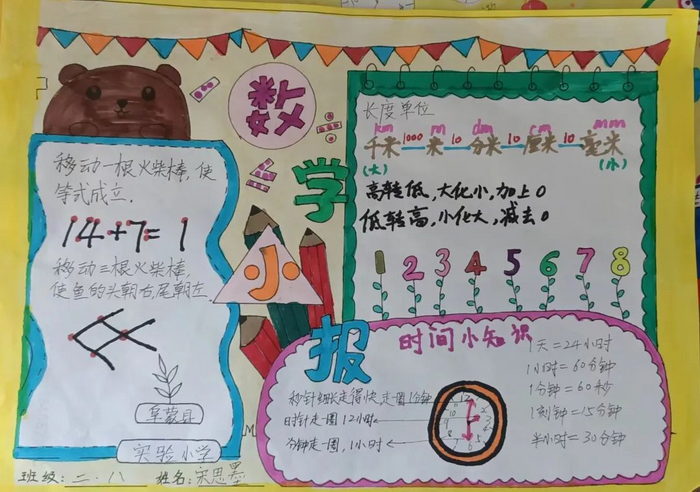 数
学
小
报
移动一根火柴棒,使
等式成立.
14+7=1
移动三根火柴棒
使鱼的头朝右,尾朝左
阜蒙县
实验小学
班级: 二.八 姓名: 宋思墨
长度单位
km m dm cm mm
千米 1000 米 10 分米 10 厘米 10 毫米
(大) (小)
高转低,大化小,加上0
低转高,小化大,减去0
1 2 3 4 5 6 7 8
时间小知识
秒针细长走得快走一圈1分钟
时针走一圈12小时
分钟走一圈,1小时
1天=24小时
1小时=60分钟
1分钟=60秒
1刻钟=15分钟
半小时=30分钟